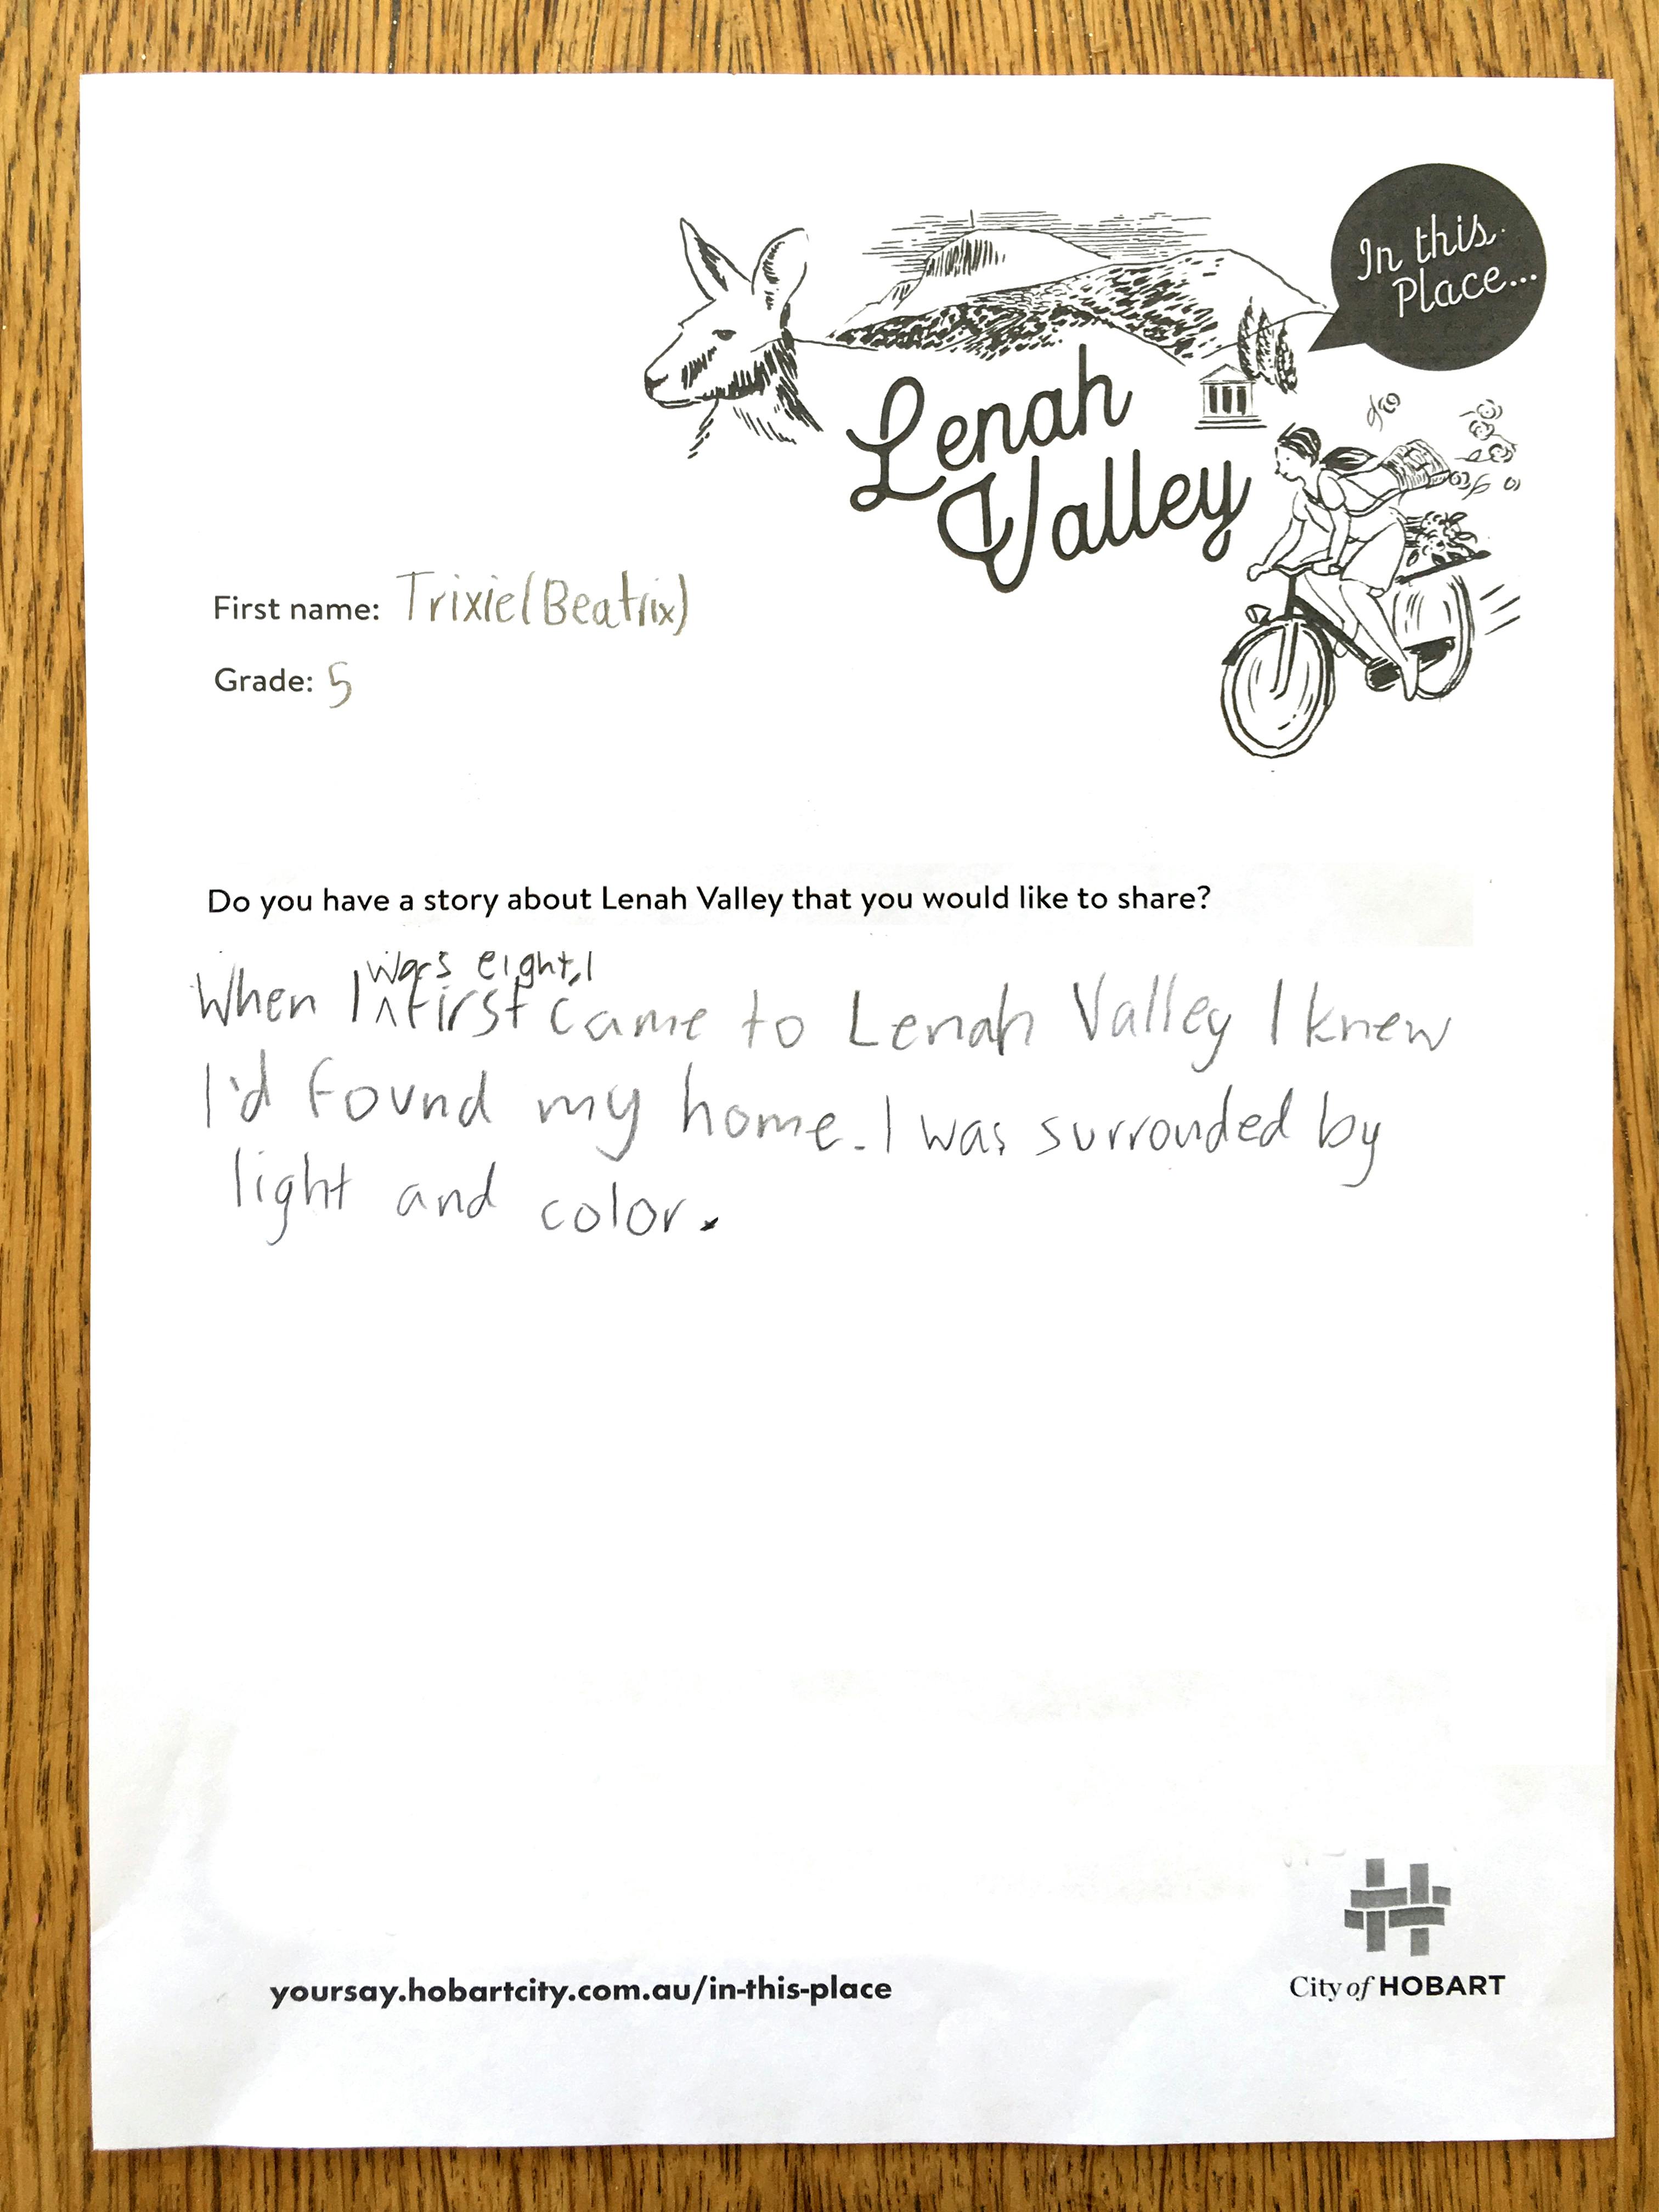 In this
Place...
Lenah
Valley
First name: Trixie(Beatrix)
Grade: 5
Do you have a story about Lenah Valley that you would like to share?
was eight, I
When I ^ first came to Lenah Valley I knew
I'd found my home. I was surrouded by
light and color.
yoursay.hobartcity.com.au/in-this-place
City of HOBART